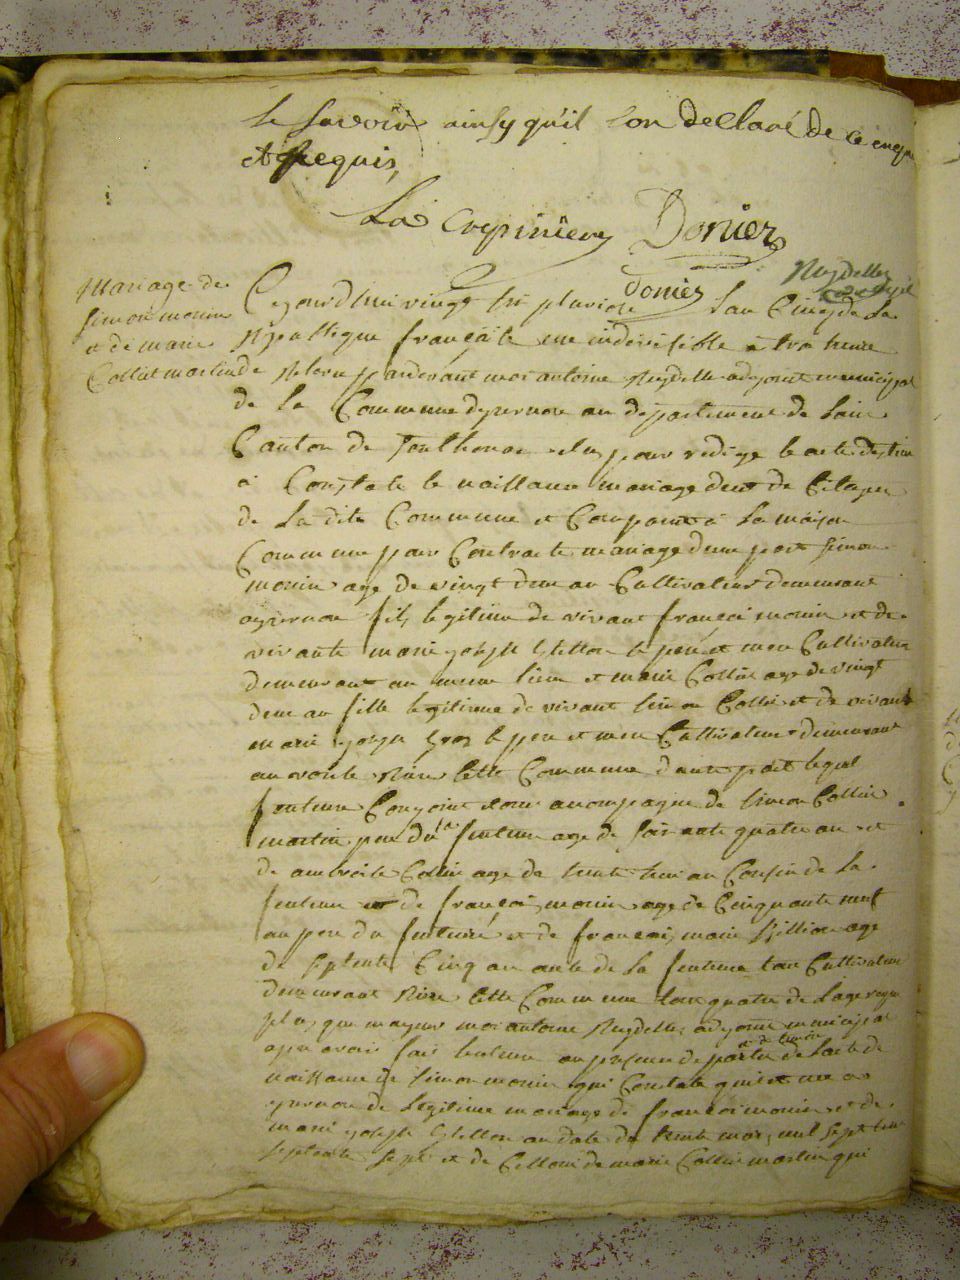 le savoir ainsy qu'il lon declaré de ce enquis
et Requis,
La crepiniere Donier
donier Reydellet
Mariage de
simon monin
et de marie
Collet martin
Cejourdhui vingt six pluviose Lan Cinq de La
Republique française une indivisible a troi heure
de Relevé pardevant moi antoine Reydellet adjoint municipal
de la Commune dizernore au departement de Lain
Canton de Sonthonax elu pour redige le acte destine
a Constate le naissance mariage deces de Citoyen
de La dite Commune et Comparut a La maison
Commune pour Contracte mariage dune part simon
monin age de vingt deux an Cultivateur demeurant
a izernore fils legitime de vivant françoi monin et de
vivante marie joseph le pere et mere Cultivateur
demeurant au meme lieu et marie Collet age de vingt
deux an fille legitime de vivant simon Collet et de vivant
marie joseph gros le pere et mere Cultivateur demeurant
au voerle Rière Cette Commune dautre part lequel
futeure Conjoint etoit acompagne de simon Collet
martin pere de la futeure age de soixante quatre an et
de ambroise Collet age de trente huit an Cousin de La
futeure et de françoi monin age de Cinquante neuf
an pere du futeure et de françoi marie age
de septente Cinq an de la futeure tou Cultivateur
demeurant Rière Cette Commune tou quatre de Lage requi
plus que mageur moi antoine Reydellet adjoint municipal
apre avoir fait lecture en presence de partie et de temoin de Lacte de
naissance de simon monin qui Constate quil est ne a
izernore de Legitime mariage de françoi monin et de
marie joseph en date du trente mars mil sept cent
septente sept et de Celloui de marie Collet martin qui